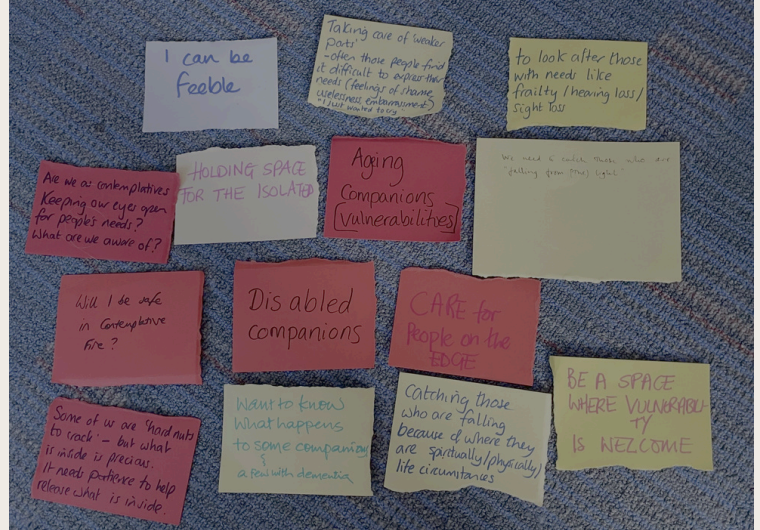 I can be
feeble
Taking care of 'weaker
parts'
- often those people find
it difficult to express their
needs (feelings of shame,
uselessness, embarrassment)
"I just wanted to cry
to look after those
with needs like
frailty / hearing loss /
sight loss
Are we as contemplatives
Keeping our eyes open
for people's needs?
What are we aware of?
HOLDING SPACE
FOR THE ISOLATED
Ageing
Companions
[vulnerabilities]
We need to catch those who are
"falling from (the) light"
Will I be safe
in Contemplative
Fire?
Disabled
companions
CARE for
People on the
EDGE
Some of us are 'hard nuts
to crack' - but what
is inside is precious.
It needs patience to help
release what is inside.
Want to know
what happens
to some companions
&
a few with dementia
Catching those
who are falling
because of where they
are spiritually/physically/
life circumstances
BE A SPACE
WHERE VULNERABILI-
TY
IS WELCOME